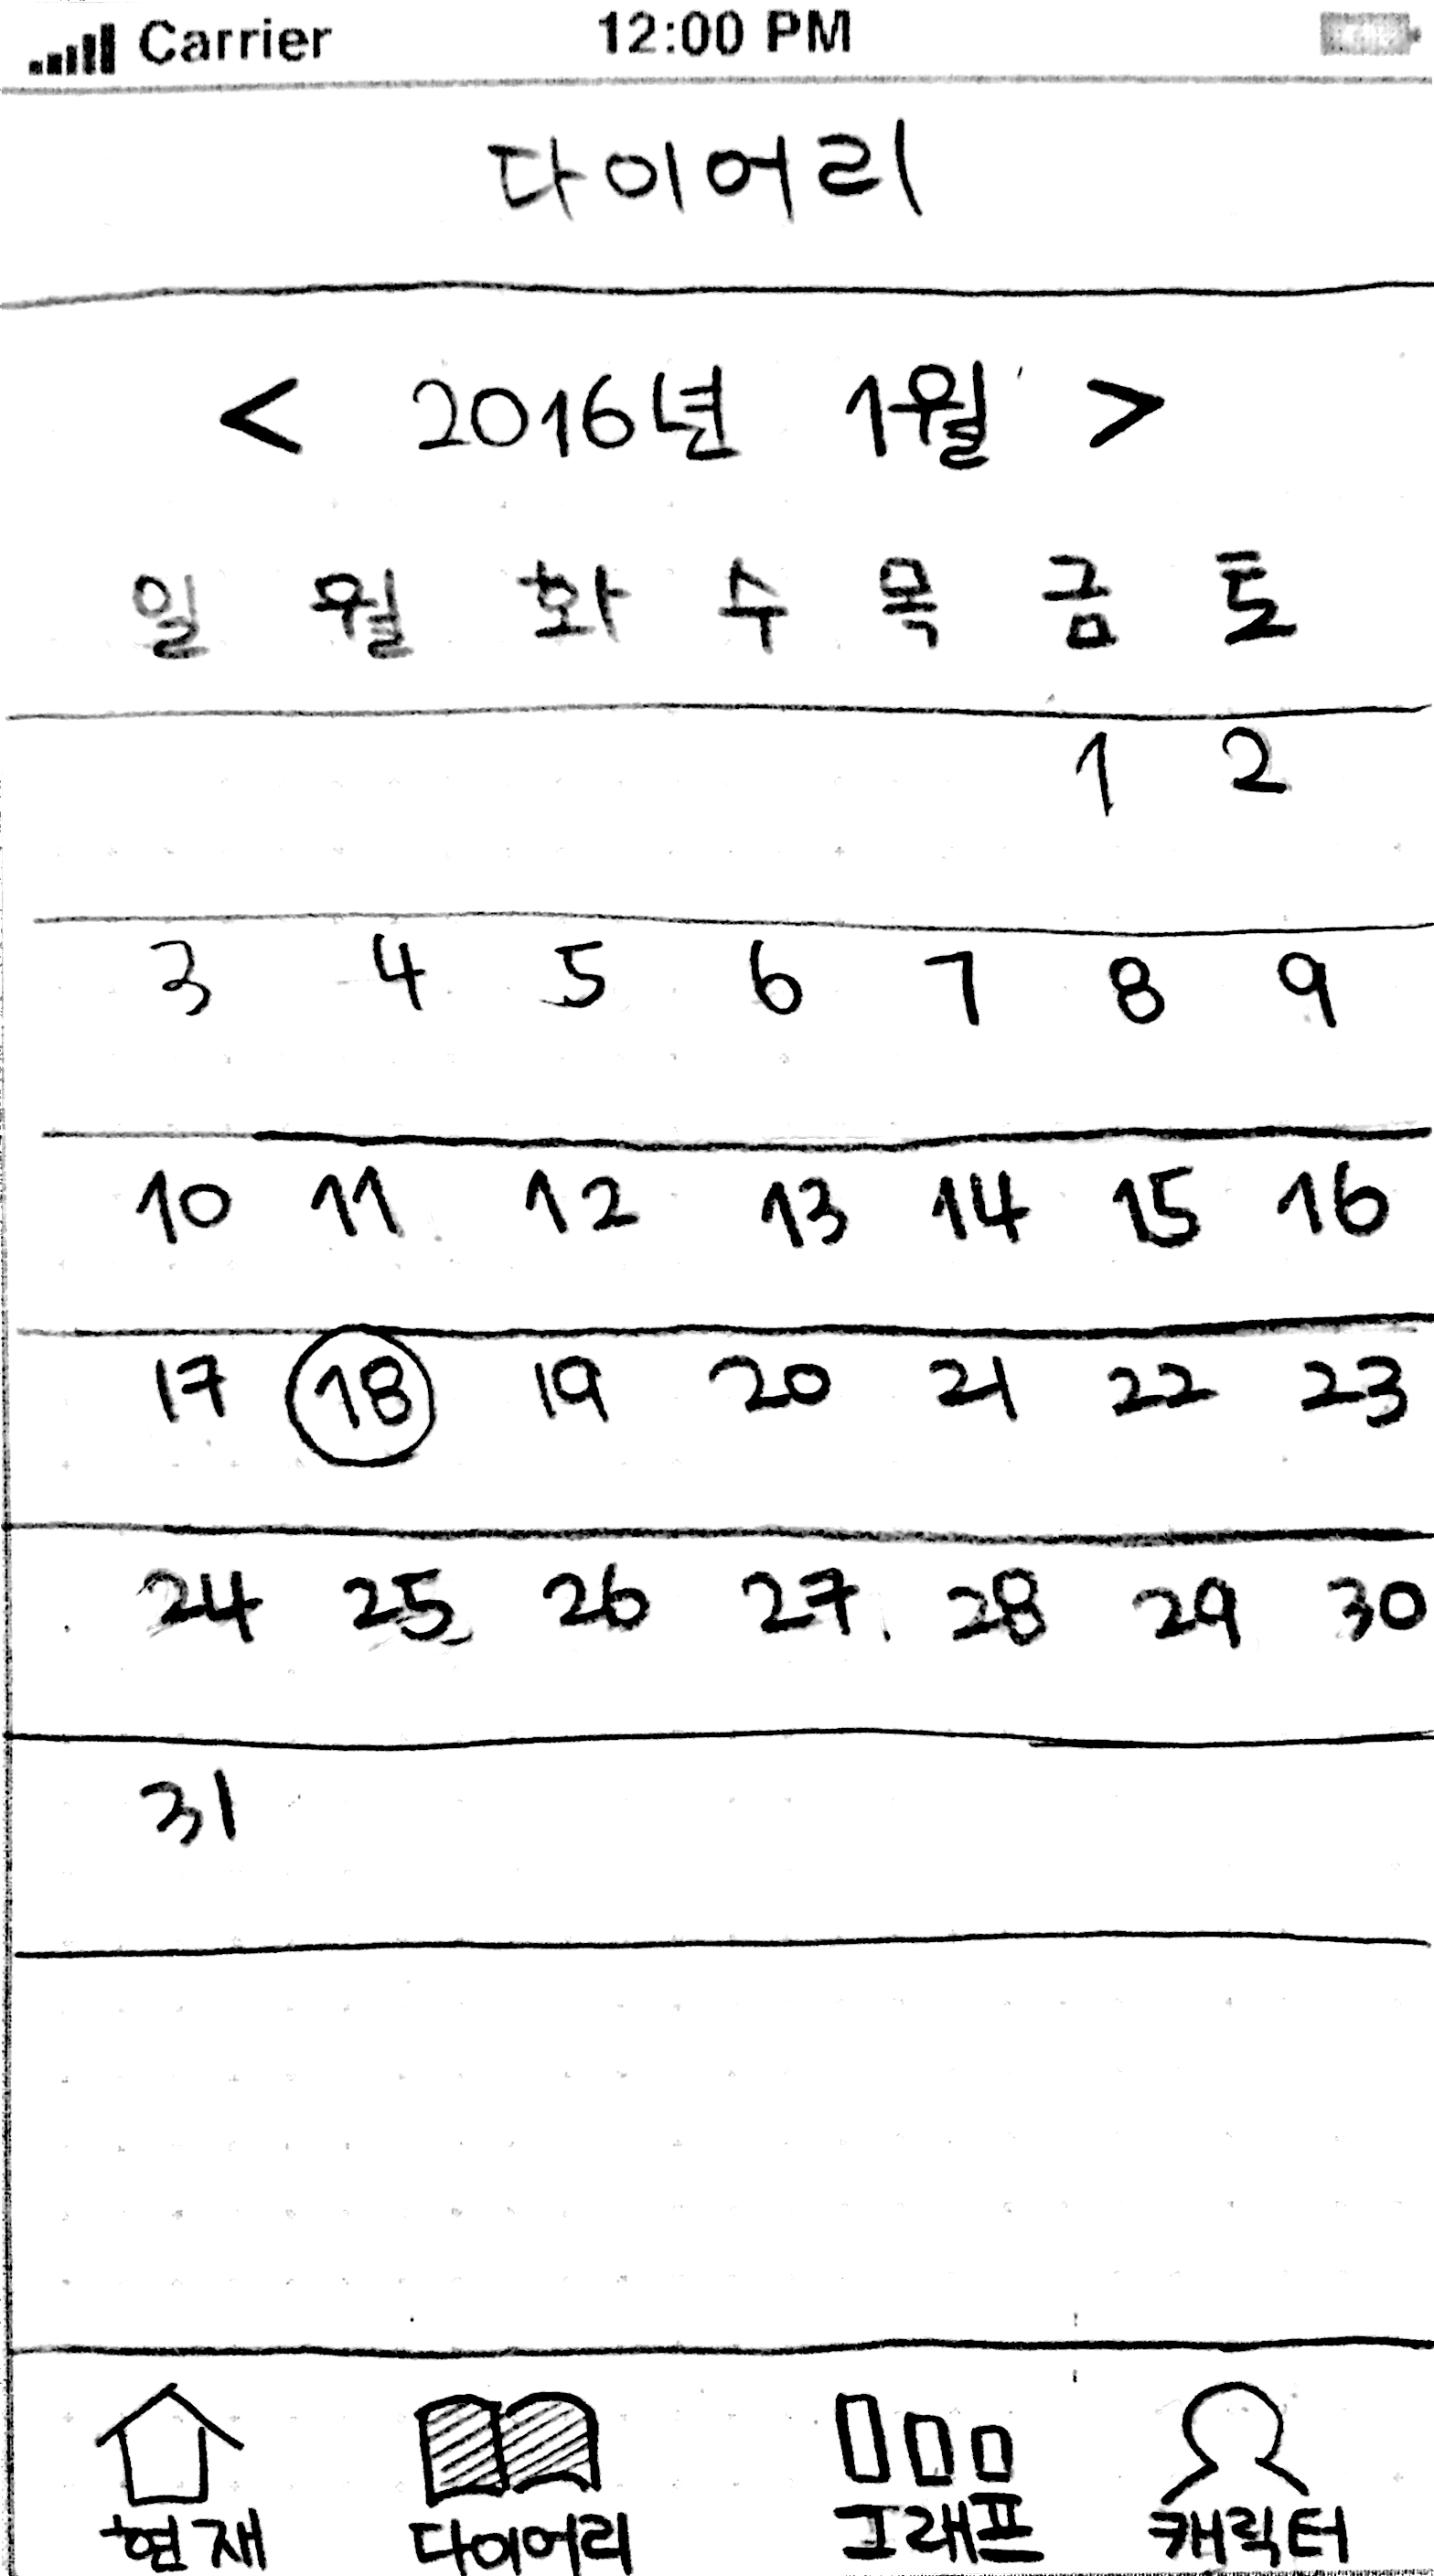 Carrier 12:00 PM
다이어리
< 2016년 1월 >
일 월 화 수 목 금 토
1 2
3 4 5 6 7 8 9
10 11 12 13 14 15 16
17 18 19 20 21 22 23
24 25 26 27 28 29 30
31
현재 다이어리 그래프 캐릭터